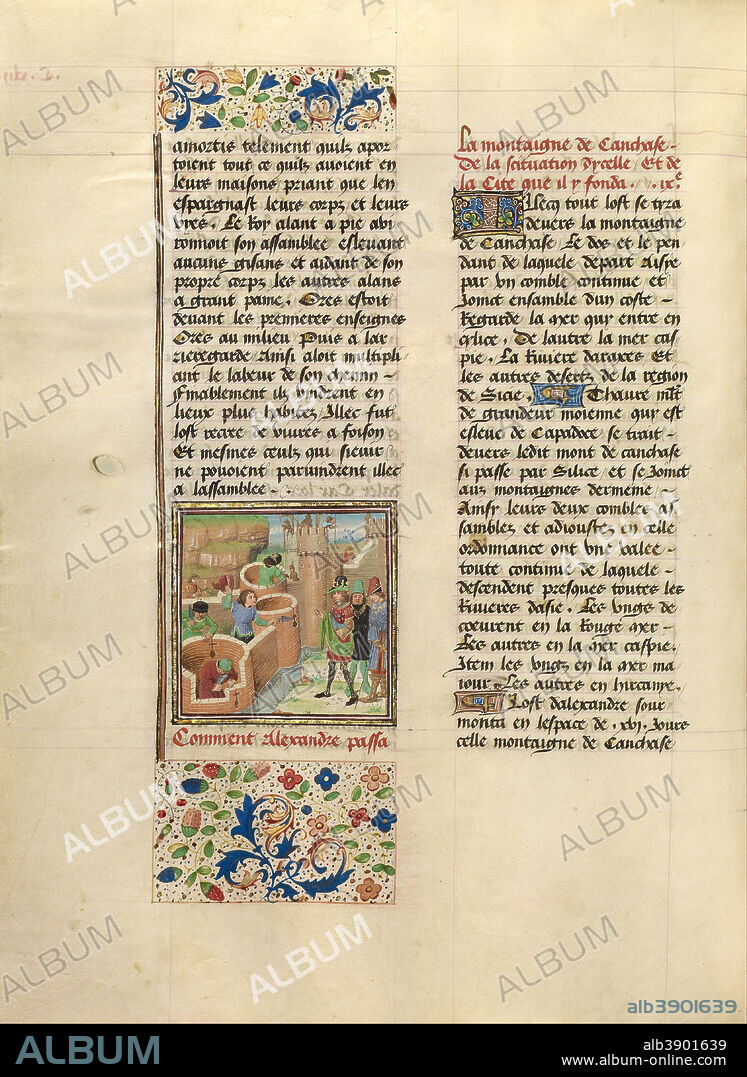 amortis telement quilz apor
toient tout ce quilz auoient en
leurs maisons priant que len
espargnast leurs corps et leurs
vyes. Le Roy alant a pie aui
ronnoit son assamblee esleuant
aucuns gisans et aidant de son
propre corps les autres alans
a grant paine. Ores estoit
deuant les premieres enseignes
Ores au milieu Puis a lar
rieregarde Ainsi aloit multipli
ant le labeur de son chemin
finablement ilz vindrent en
lieux plus habitez Illec fut
lost recree de viures a foison
Et mesmes ceulz qui sieuir
ne pouoient paruindrent illec
a lassamblee
Comment Alexandre passa
La montaigne de Canchase
De la scituation dycelle Et de
la Cite que il y fonda. .ix.e
Illecq tout lost se tyra
deuers la montaigne
de Canchase Le dos et le pen
dant de laquele depart Aisye
par vn comble continue et
Joinct ensamble dun coste
Regarde la mer quy entre en
cylice. De lautre la mer cas
pie. La Riuiere daraxes Et
les autres desertz de la region
de Sicie. Thaure mlt
de grandeur moienne quy est
esleue de Capadoce se trait
deuers ledit mont de canchase
si passe par Silice et se Joinct
aux montaignes dermenie
Ainsy leurs deux combles as
samblez et adioustez en celle
ordonnance ont vne valee
toute continue de laquele
descendent presques toutes les
Riuieres dasie. Les vngs de
coeurent en la Rouge mer
Les autres en la mer caspie.
Item les vngz en la mer ma
iour. Les autres en hircanye.
Lost dalexandre sour
monta en lespace de .xvi. Jours
celle montaigne de Canchase
ALBUM
alb3901639
ALBUM
alb3901639
www.album-online.com